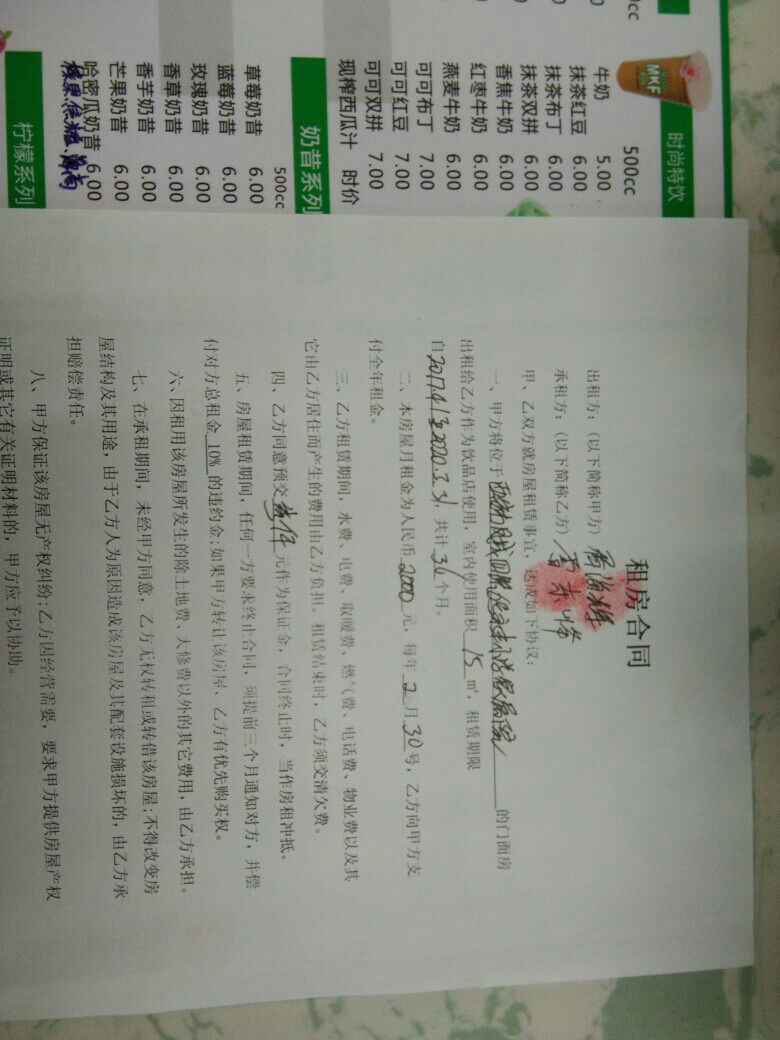 cc
0
0
时尚特饮
500cc
MKF
牛奶 5.00
抹茶红豆 6.00
抹茶布丁 6.00
抹茶双拼 6.00
香焦牛奶 6.00
红枣牛奶 6.00
燕麦牛奶 6.00
可可布丁 7.00
可可红豆 7.00
可可双拼 7.00
现榨西瓜汁 时价
奶昔系列
500cc
草莓奶昔 6.00
蓝莓奶昔 6.00
玫瑰奶昔 6.00
香草奶昔 6.00
香芋奶昔 6.00
芒果奶昔 6.00
哈密瓜奶昔 6.00
柠檬系列
租房合同
出租方：（以下简称甲方）
承租方：（以下简称乙方）
甲、乙双方就房屋租赁事宜，达成如下协议：
一、甲方将位于 的门面房
出租给乙方作为饮品店使用，室内使用面积 15 m²，租赁期限
自 2017.4.1至2020.3.31，共计 36 个月。
二、本房屋月租金为人民币 2000 元，每年 2 月 30 号，乙方向甲方支
付全年租金。
三、乙方租赁期间，水费、电费、取暖费、燃气费、电话费、物业费以及其
它由乙方居住而产生的费用由乙方负担。租赁结束时，乙方须交清欠费。
四、乙方同意预交 元作为保证金，合同终止时，当作房租冲抵。
五、房屋租赁期间，任何一方要求终止合同，须提前三个月通知对方，并偿
付对方总租金 10% 的违约金；如果甲方转让该房屋，乙方有优先购买权。
六、因租用该房屋所发生的除土地费、大修费以外的其它费用，由乙方承担。
七、在承租期间，未经甲方同意，乙方无权转租或转借该房屋；不得改变房
屋结构及其用途，由于乙方人为原因造成该房屋及其配套设施损坏的，由乙方承
担赔偿责任。
八、甲方保证该房屋无产权纠纷；乙方因经营需要，要求甲方提供房屋产权
证明或其它有关证明材料的，甲方应予以协助。